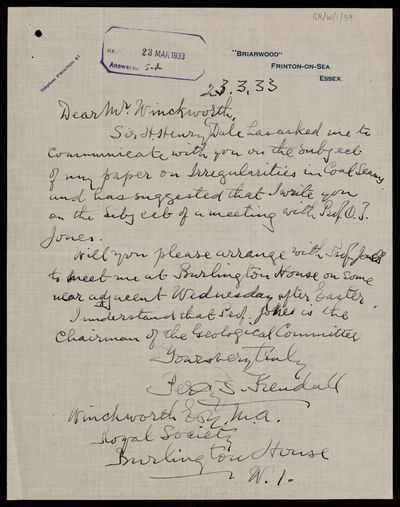 RR/W/1/59
Rec. 23 MAR. 1933
Answered
"BRIARWOOD"
FRINTON-ON-SEA
ESSEX
Telephone FRINTON 81
23.3.33
Dear Mr Winckworth,
Sir H Henry Dale has asked me to
communicate with you on the subject
of my paper on Irregularities in Coal Seams
and has suggested that I write you
on the subject of a meeting with Prof O.T.
Jones.
Will you please arrange with Prof Jones
to meet me at Burlington House on some
near adjacent Wednesday after Easter.
I understand that Prof. Jones is the
Chairman of the Geological Committee
Yours very truly
Percy F. Kendall
Winckworth Esq. M.A.
Royal Society
Burlington House
W.1.